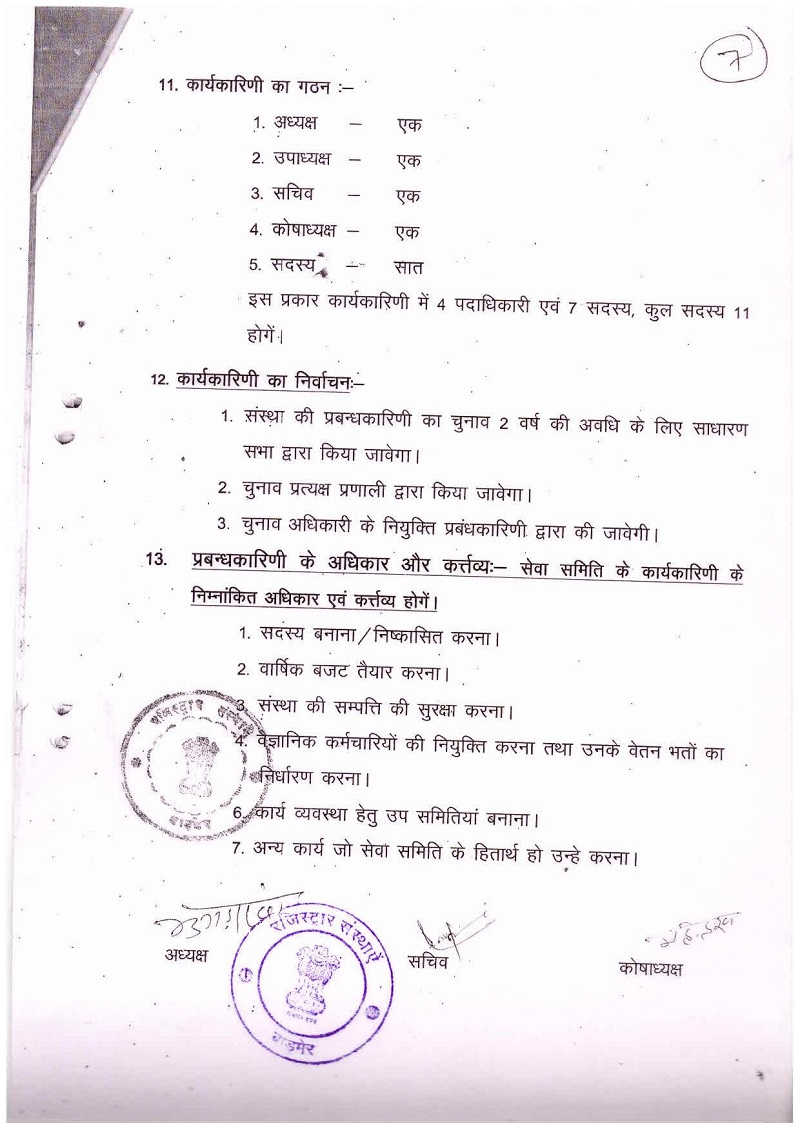 7
11. कार्यकारिणी का गठन :–
1. अध्यक्ष – एक
2. उपाध्यक्ष – एक
3. सचिव – एक
4. कोषाध्यक्ष – एक
5. सदस्य – सात
इस प्रकार कार्यकारिणी में 4 पदाधिकारी एवं 7 सदस्य, कुल सदस्य 11
होगें।
12. कार्यकारिणी का निर्वाचनः–
1. संस्था की प्रबन्धकारिणी का चुनाव 2 वर्ष की अवधि के लिए साधारण
सभा द्वारा किया जावेगा।
2. चुनाव प्रत्यक्ष प्रणाली द्वारा किया जावेगा।
3. चुनाव अधिकारी के नियुक्ति प्रबंधकारिणी द्वारा की जावेगी।
13. प्रबन्धकारिणी के अधिकार और कर्त्तव्यः– सेवा समिति के कार्यकारिणी के
निम्नांकित अधिकार एवं कर्त्तव्य होगें।
1. सदस्य बनाना/निष्कासित करना।
2. वार्षिक बजट तैयार करना।
3. संस्था की सम्पत्ति की सुरक्षा करना।
4. वैज्ञानिक कर्मचारियों की नियुक्ति करना तथा उनके वेतन भतों का
निर्धारण करना।
6. कार्य व्यवस्था हेतु उप समितियां बनाना।
7. अन्य कार्य जो सेवा समिति के हितार्थ हो उन्हे करना।
रजिस्ट्रार संस्थाऐं
बाडमेर
अध्यक्ष
रजिस्ट्रार संस्थाऐं
बाडमेर
सचिव
कोषाध्यक्ष